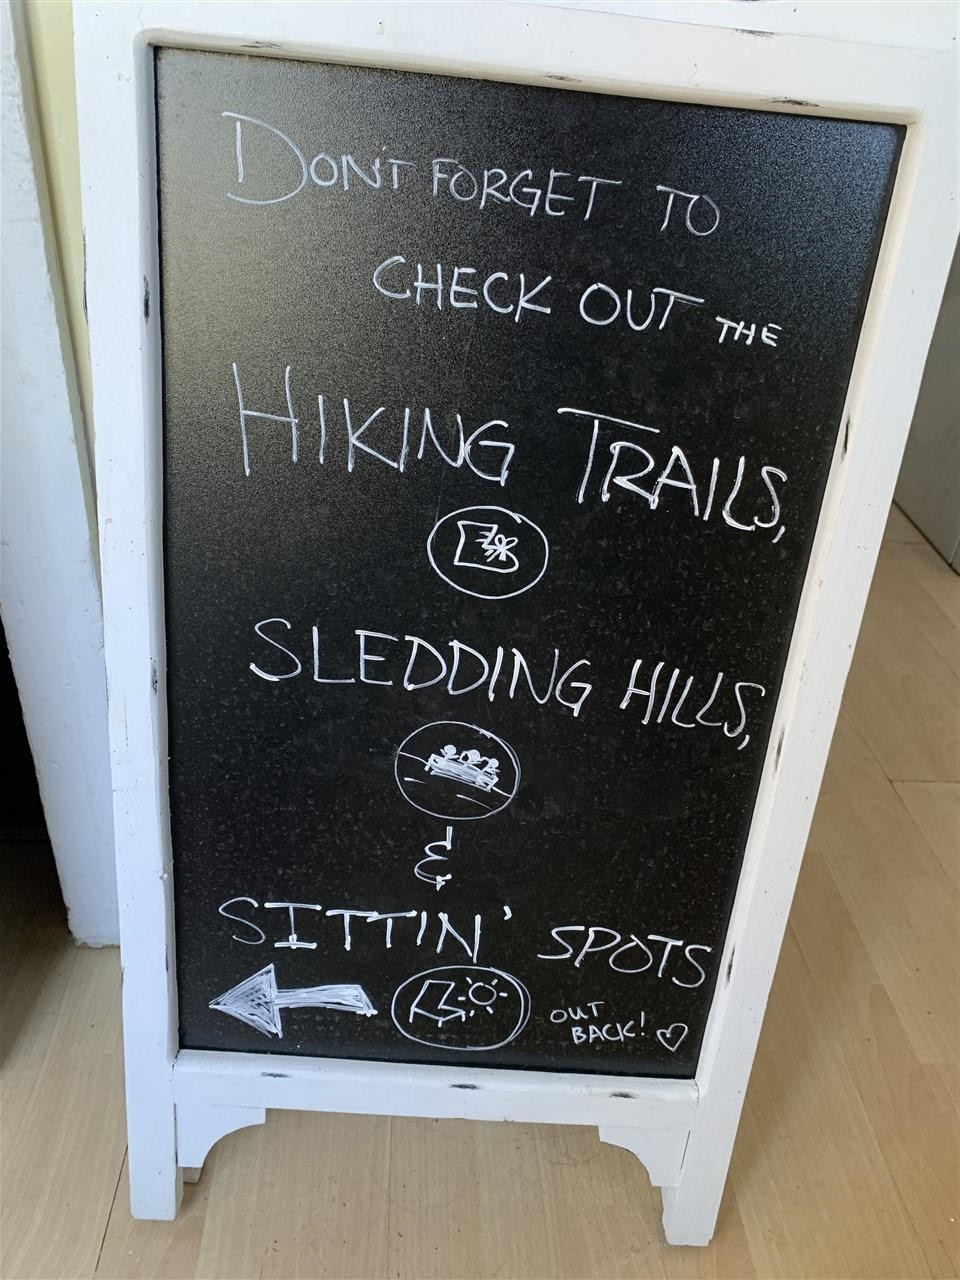 DON'T FORGET TO
CHECK OUT THE
HIKING TRAILS,
SLEDDING HILLS,
&
SITTIN' SPOTS
OUT
BACK!